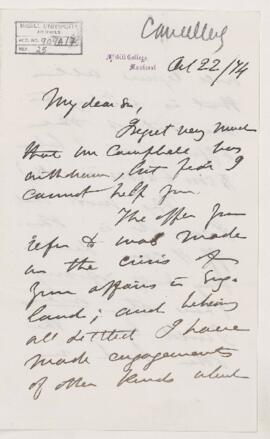 McGILL UNIVERSITY
ARCHIVES
ACC. NO. 909A/7
REF. 25
Cancelled
McGill College,
Montreal
Oct 22/74
My dear Sir,
I regret very much
that Mr Campbell has
withdrawn, but fear I
cannot help you.
The offer you
refer to was made
in the crisis of
your affairs in Eng-
land; and believing
all settled I have
made engagements
of other kinds which